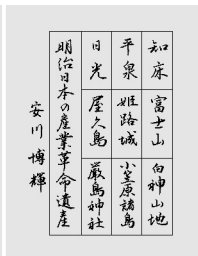 知床 富士山 白神山地
平泉 姫路城 小笠原諸島
日光 屋久島 厳島神社
明治日本の産業革命遺産
安川博輝